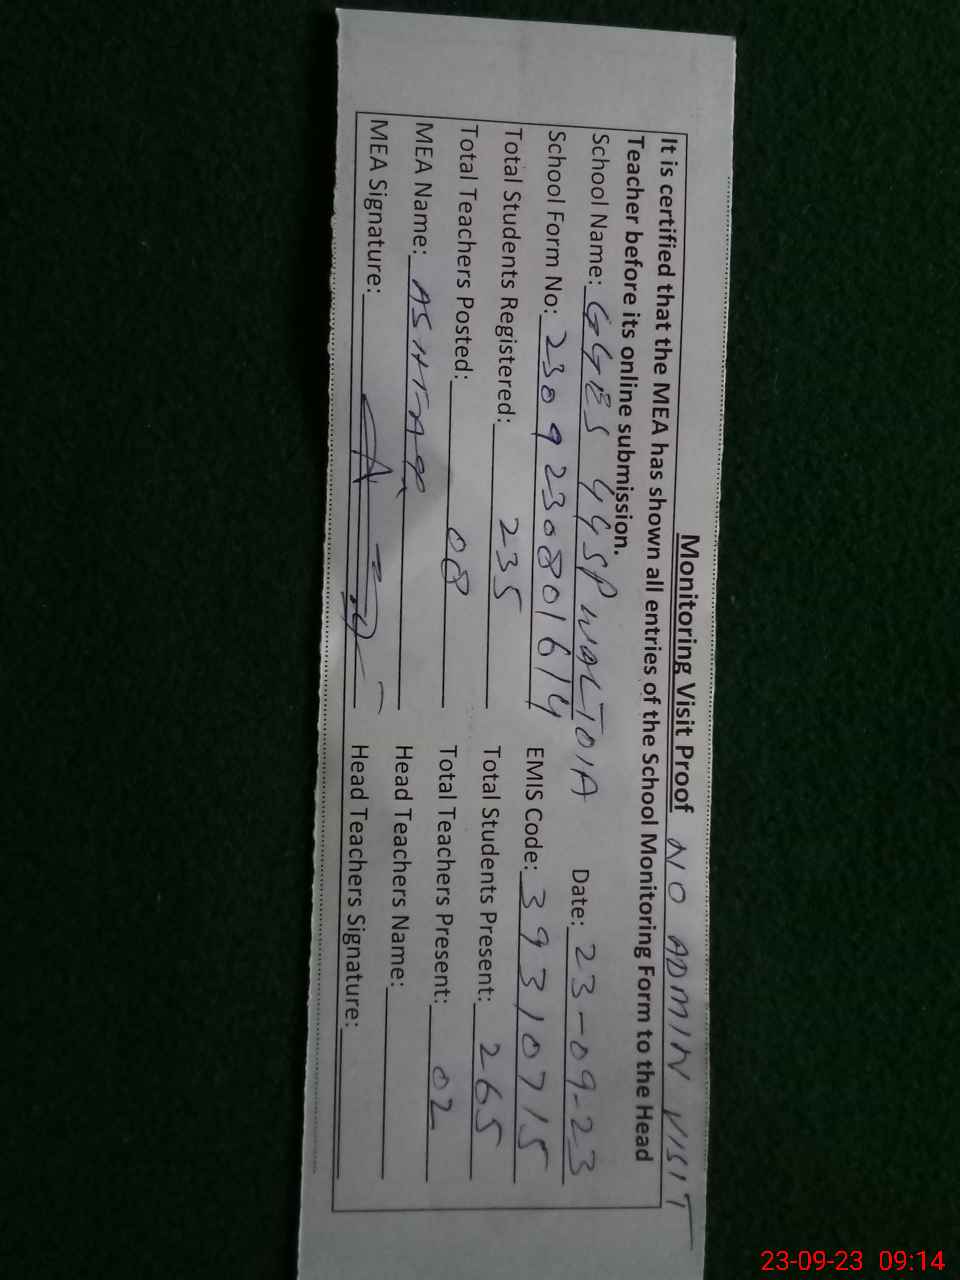 Monitoring Visit Proof NO ADMIN VISIT
It is certified that the MEA has shown all entries of the School Monitoring Form to the Head
Teacher before its online submission.
School Name: GGES 44SP WALTOIA Date: 23-09-23
School Form No: 2309230801614 EMIS Code: 39310715
Total Students Registered: 235 Total Students Present: 265
Total Teachers Posted: 08 Total Teachers Present: 02
MEA Name: ASHFAQ Head Teachers Name:
MEA Signature: Head Teachers Signature:
23-09-23 09:14